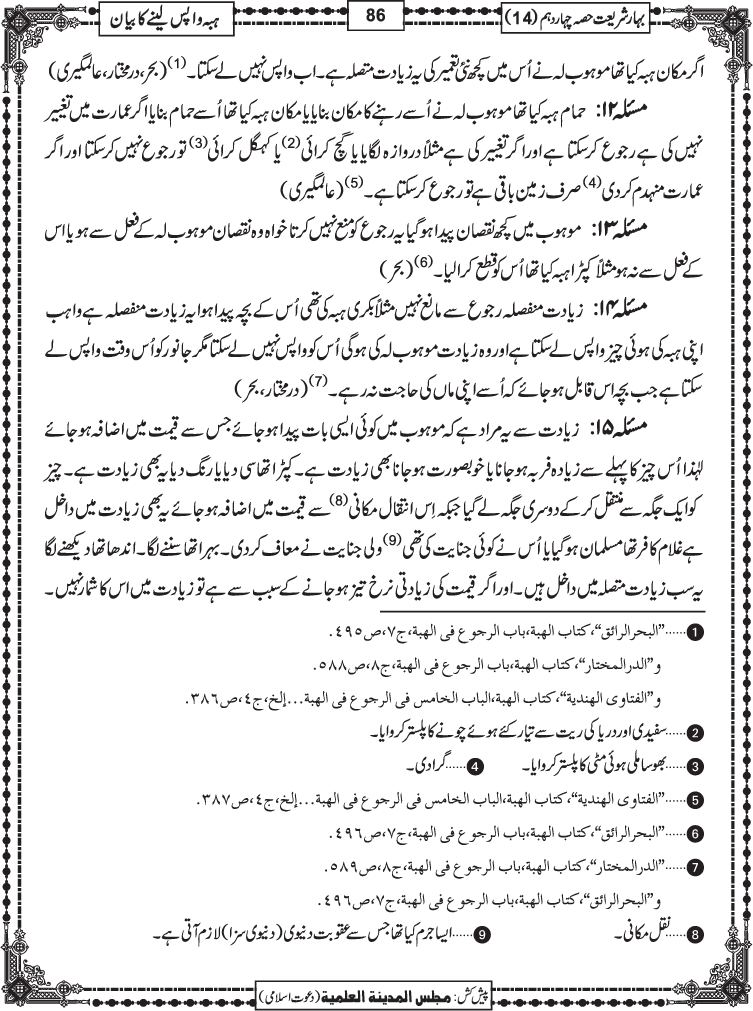 بہارِ شریعت حصہ چہاردہم (14)
86
ہبہ واپس لینے کا بیان
اگر مکان ہبہ کیا تھا موہوب لہ نے اُس میں کچھ نئی تعمیر کی یہ زیادت متصلہ ہے۔ اب واپس نہیں لے سکتا۔(1) (بحر، درمختار، عالمگیری)
مسئلہ ۱۲: حمام ہبہ کیا تھا موہوب لہ نے اُسے رہنے کا مکان بنایا یا مکان ہبہ کیا تھا اُسے حمام بنایا اگر عمارت میں تغییر
نہیں کی ہے رجوع کرسکتا ہے اور اگر تغییر کی ہے مثلاً دروازہ لگایا یا گچ کرائی(2) یا کہگل کرائی(3) تو رجوع نہیں کرسکتا اور اگر
عمارت منہدم کردی(4) صرف زمین باقی ہے تو رجوع کرسکتا ہے۔(5) (عالمگیری)
مسئلہ ۱۳: موہوب میں کچھ نقصان پیدا ہوگیا یہ رجوع کو منع نہیں کرتا خواہ وہ نقصان موہوب لہ کے فعل سے ہو یا اس
کے فعل سے نہ ہو مثلاً کپڑا ہبہ کیا تھا اُس کو قطع کرالیا۔(6) (بحر)
مسئلہ ۱۴: زیادت منفصلہ رجوع سے مانع نہیں مثلاً بکری ہبہ کی تھی اُس کے بچہ پیدا ہوا یہ زیادت منفصلہ ہے واہب
اپنی ہبہ کی ہوئی چیز واپس لے سکتا ہے اور وہ زیادت موہوب لہ کی ہوگی اُس کو واپس نہیں لے سکتا مگر جانور کو اُس وقت واپس لے
سکتا ہے جب بچہ اس قابل ہوجائے کہ اُسے اپنی ماں کی حاجت نہ رہے۔(7) (درمختار، بحر)
مسئلہ ۱۵: زیادت سے یہ مراد ہے کہ موہوب میں کوئی ایسی بات پیدا ہوجائے جس سے قیمت میں اضافہ ہوجائے
لہٰذا اُس چیز کا پہلے سے زیادہ فربہ ہوجانا یا خوبصورت ہوجانا بھی زیادت ہے۔ کپڑا تھا سی دیا یا رنگ دیا یہ بھی زیادت ہے۔ چیز
کو ایک جگہ سے منتقل کرکے دوسری جگہ لے گیا جبکہ اِس انتقال مکانی(8) سے قیمت میں اضافہ ہوجائے یہ بھی زیادت میں داخل
ہے غلام کافر تھا مسلمان ہوگیا یا اُس نے کوئی جنایت کی تھی(9) ولی جنایت نے معاف کردی۔ بہرا تھا سننے لگا۔ اندھا تھا دیکھنے لگا
یہ سب زیادت متصلہ میں داخل ہیں۔ اور اگر قیمت کی زیادتی نرخ تیز ہوجانے کے سبب سے ہے تو زیادت میں اس کا شمار نہیں۔
1 ......"البحرالرائق"،کتاب الهبة،باب الرجوع فی الهبة،ج٧،ص٤٩٥.
و"الدرالمختار"،کتاب الهبة،باب الرجوع فی الهبة،ج٨،ص٥٨٨.
و"الفتاوی الهندية"،کتاب الهبة،الباب الخامس فی الرجوع فی الهبة...إلخ،ج٤،ص٣٨٦.
2 ......سفیدی اور دریا کی ریت سے تیار کئے ہوئے چونے کا پلستر کروایا۔
3 ......بھوسا ملی ہوئی مٹی کا پلستر کروایا۔ 4 ......گرادی۔
5 ......"الفتاوی الهندية"،کتاب الهبة،الباب الخامس فی الرجوع فی الهبة...إلخ،ج٤،ص٣٨٧.
6 ......"البحرالرائق"،کتاب الهبة،باب الرجوع فی الهبة،ج٧،ص٤٩٦.
7 ......"الدرالمختار"،کتاب الهبة،باب الرجوع فی الهبة،ج٨،ص٥٨٩.
و"البحرالرائق"،کتاب الهبة،باب الرجوع فی الهبة،ج٧،ص٤٩٦.
8 ......نقل مکانی۔ 9 ......ایسا جرم کیا تھا جس سے عقوبت دنیوی (دنیوی سزا) لازم آتی ہے۔
پیش کش: مجلس المدينة العلمية (دعوت اسلامی)